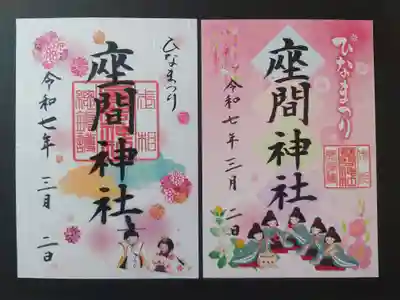 ひなまつり
座間神社
令和七年
三月
二日
ひなまつり
座間神社
令和七年
三月
二日